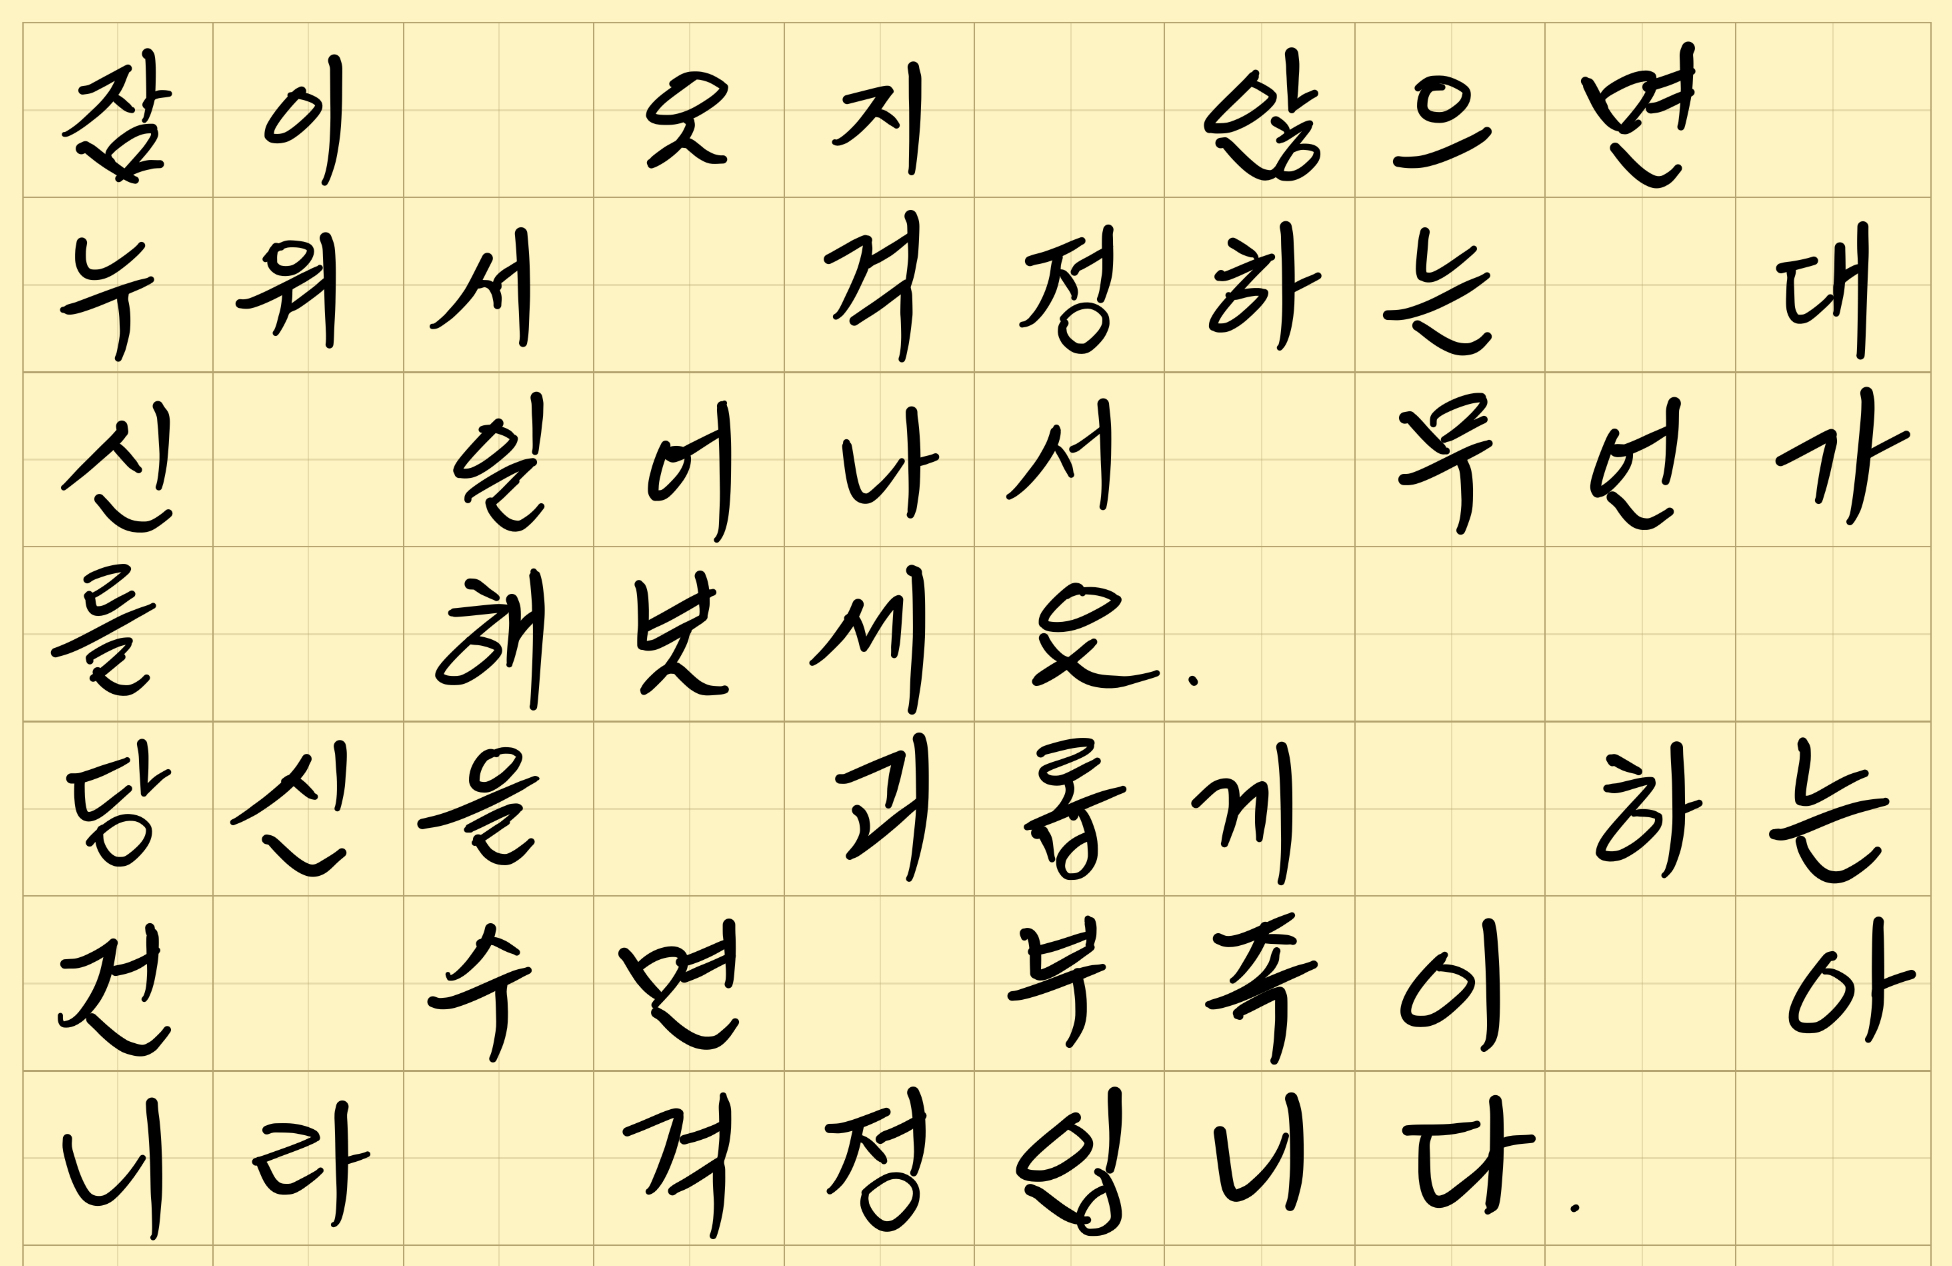 잠이 오지 않으면
누워서 걱정하는 대
신 일어나서 무언가
를 해보세요.
당신을 괴롭게 하는
건 수면 부족이 아
니라 걱정입니다.